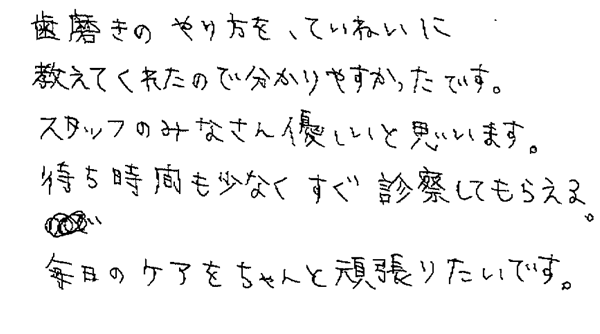 歯磨きのやり方を、ていねいに
教えてくれたので分かりやすかったです。
スタッフのみなさん優しいと思います。
待ち時間も少なくすぐ診察してもらえる。
毎日のケアをちゃんと頑張りたいです。